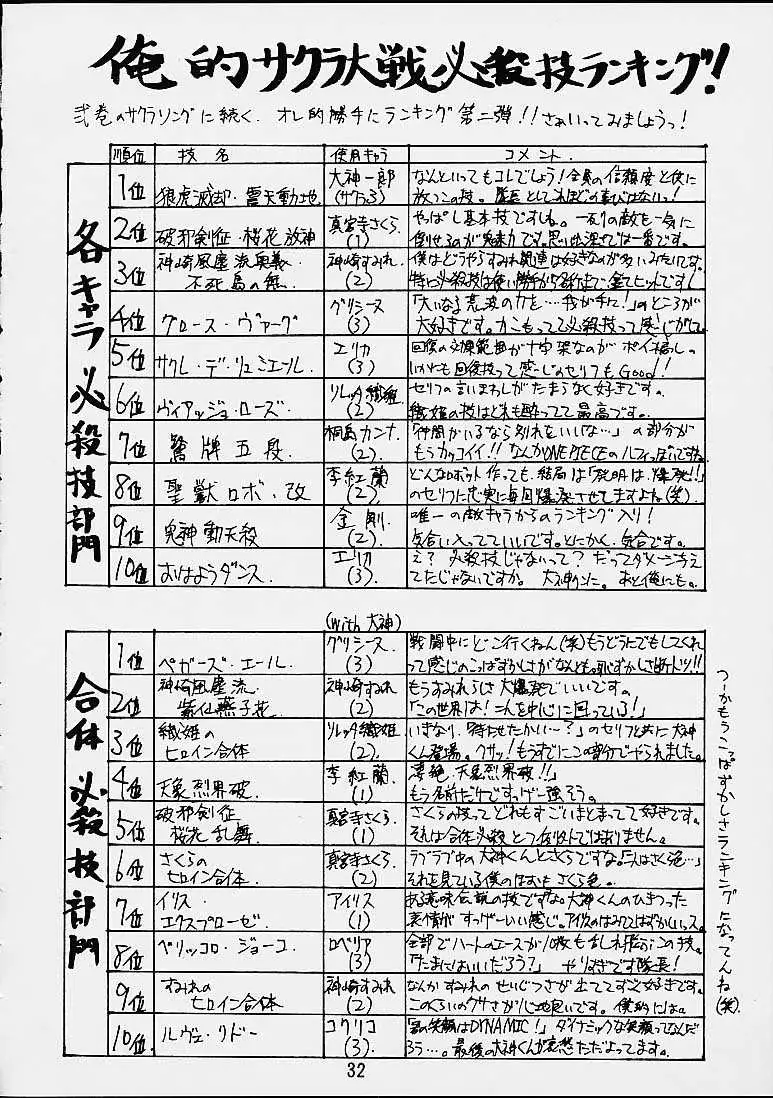 俺的サクラ大戦必殺技ランキング!
弐巻のサクラソングに続く、オレ的勝手にランキング第二弾!!さぁいってみましょうっ!
各キャラ必殺技部門
順位 技名 使用キャラ コメント
1位 狼虎滅却・震天動地 大神一郎 (サクラ3)
なんといってもコレでしょう!全員の信頼度と供に
放つこの技。隊長としてこれほどの喜びはないっ!
2位 破邪剣征・桜花放神 真宮寺さくら (1)
やっぱし基本技ですしね。一列の敵も一気に
倒せるのが魅力です。思い出深さでは一番です。
3位 神崎風塵流奥義・不死鳥の舞 神崎すみれ (2)
僕はどうやらすみれ関連は好きなのが多いみたいです。
特に必殺技は使い勝手から名前まで全てヒットです!
4位 グロース・ヴァーグ グリシーヌ (3)
「大いなる荒波の力を…我が手に!」のところが
大好きです。
5位 サクレ・デ・リュミエール エリカ (3)
回復の効果範囲が十字架なのがポイント高しの
いかにも回復技って感じのセリフもGood!
6位 ヴィアッジョ・ローズ ソレッタ織姫 (2)
セリフの言いまわしがたまらなく好きです。
織姫の技はどれも酔ってて最高です。
7位 鷺牌五段 桐島カンナ (2)
「仲間がいるなら別れをいいな…」の部分が
もうカッコイイ!!なんかONE PIECEのルフィっぽいですね。
8位 聖獣ロボ・改 李紅蘭 (2)
どんなロボット作っても、結局は「発明は爆発!!」
のセリフに忠実に毎回爆発させてますよね(笑)
9位 鬼神動天殺 金剛 (2)
唯一の敵キャラからのランキング入り!
気合い入ってていいです。とにかく、気合です。
10位 おはようダンス エリカ (3)
え?必殺技じゃないって?だってダメージ与え
てたじゃないですか。大神クンに。あと俺にも。
合体必殺技部門
(with 大神)
1位 ペガーズ・エール グリシーヌ (3)
戦闘中にどこ行くねん(笑)もうどうにでもしてくれ
って感じのこっぱずかしさがなんとも。恥ずかしさ断トツ!!
2位 神崎風塵流 紫仙燕子花 神崎すみれ (2)
もうすみれらしさ大爆発でいいです。
「この世界は!二人を中心に回っている!」
3位 織姫のヒロイン合体 ソレッタ織姫 (2)
いきなり、「待たせたかい〜?」のセリフと共に大神
くん登場。クサッ!もうすでにこの部分でやられました。
4位 天象烈界破 李紅蘭 (1)
凄絶、天象烈界破!!
もう名前だけです。すげー強そう。
5位 破邪剣征 桜花乱舞 真宮寺さくら (1)
さくらの技ってどれもすごいまとまってて好きです。
それは合体必殺とて例外ではありません。
6位 さくらのヒロイン合体 真宮寺さくら (2)
ラブラブ中の大神くんとさくらですな。
それを見ている僕のほほもさくら色。
7位 イリス・エクスプローゼ アイリス (1)
ある意味伝説の技ですな。大神くんのひきつった
表情がすっげーいい感じ。
8位 ペリッコロ・ジョーコ ロベリア (3)
全部でハートのエースが10枚
「たまにはいいだろう?」やりすぎです隊長!
9位 すみれのヒロイン合体 神崎すみれ (2)
なんかすみれのせいじつさが出ててすごく好きです。
このくらいのクサさが心地良いです。僕的には。
10位 ルヴェ・リドー コクリコ (3)
「君の笑顔はDYNAMIC!」ダイナミックな笑顔ってなんだ
ろう…。最後の大神くんが哀愁ただよってます。
つーかもうこっぱずかしさランキングになってんね(笑)
32